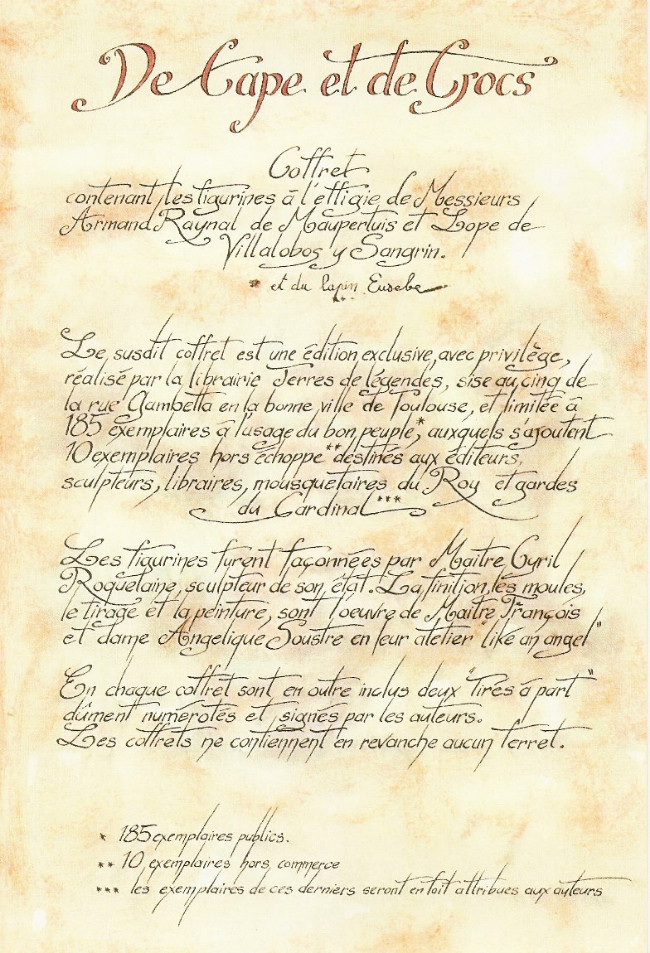 De Cape et de Crocs
Coffret
contenant les figurines à l'effigie de Messieurs
Armand Raynal de Maupertuis et Lope de
Villalobos y Sangrin.
* et du lapin Eusebe
Le susdit coffret est une édition exclusive, avec privilège,
réalisé par la librairie Terres de légendes, sise au cinq de
la rue Gambetta en la bonne ville de Toulouse, et limitée à
185 exemplaires à l'usage du bon peuple,* auxquels s'ajoutent
10 exemplaires hors échoppe** destinés aux éditeurs,
sculpteurs, libraires, mousquetaires du Roy et gardes
du Cardinal***
Les figurines furent façonnées par Maître Cyril
Roquelaine, sculpteur de son état. La finition, les moules,
le tirage et la peinture, sont l'oeuvre de Maître François
et dame Angelique Soustre en leur atelier "like an angel"
En chaque coffret sont en outre inclus deux "tirés à part"
dûment numérotés et signés par les auteurs.
Les coffrets ne contiennent en revanche aucun ferret.
* 185 exemplaires publics.
** 10 exemplaires hors commerce
*** les exemplaires de ces derniers seront en fait attribues aux auteurs